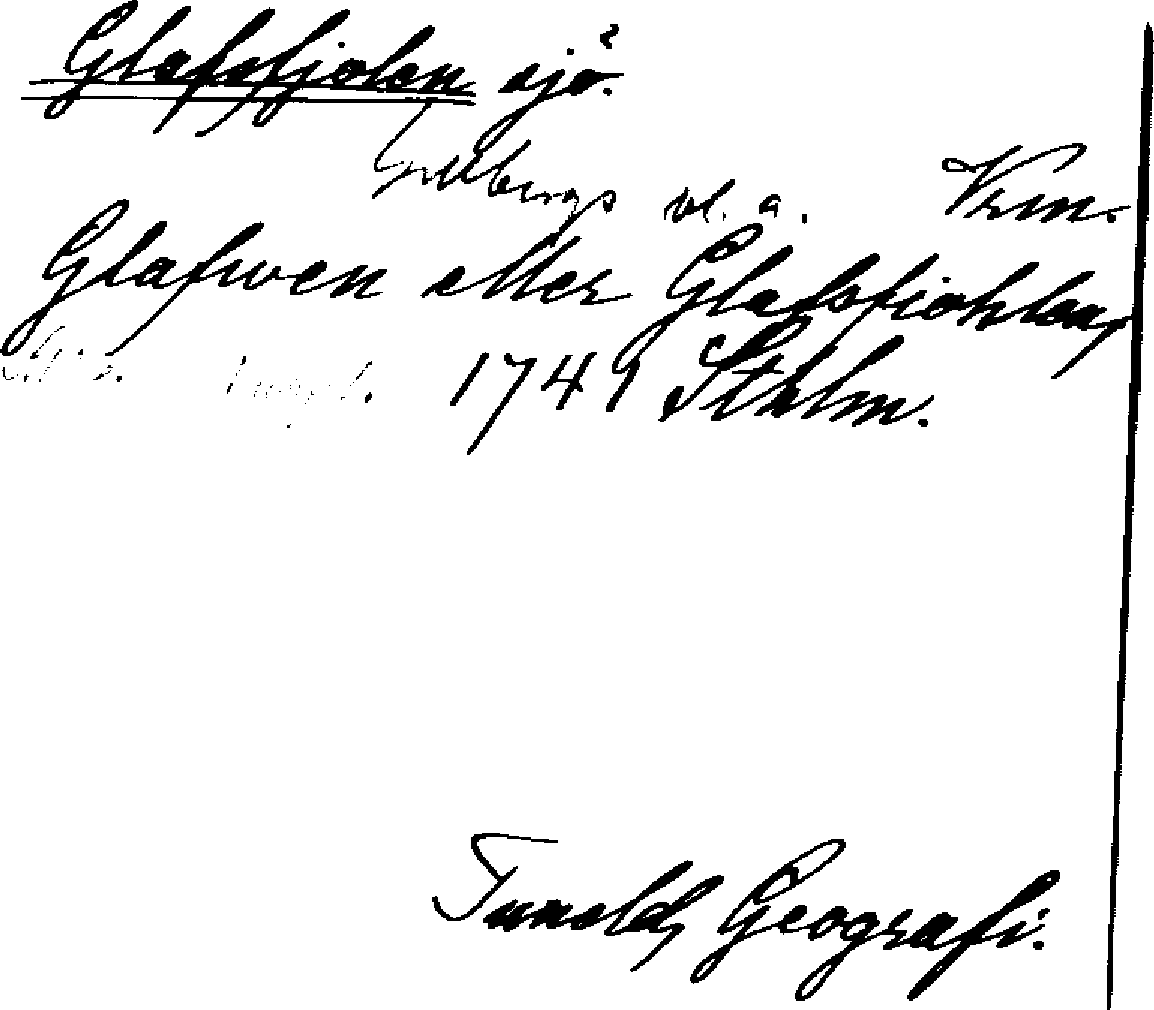 Glafsfjolen sjö.
Gillbergs hd. a. Vrm.
Glafwen eller Glafsfiohlen,
1749 Sthlm.
Tunelds Geografi.